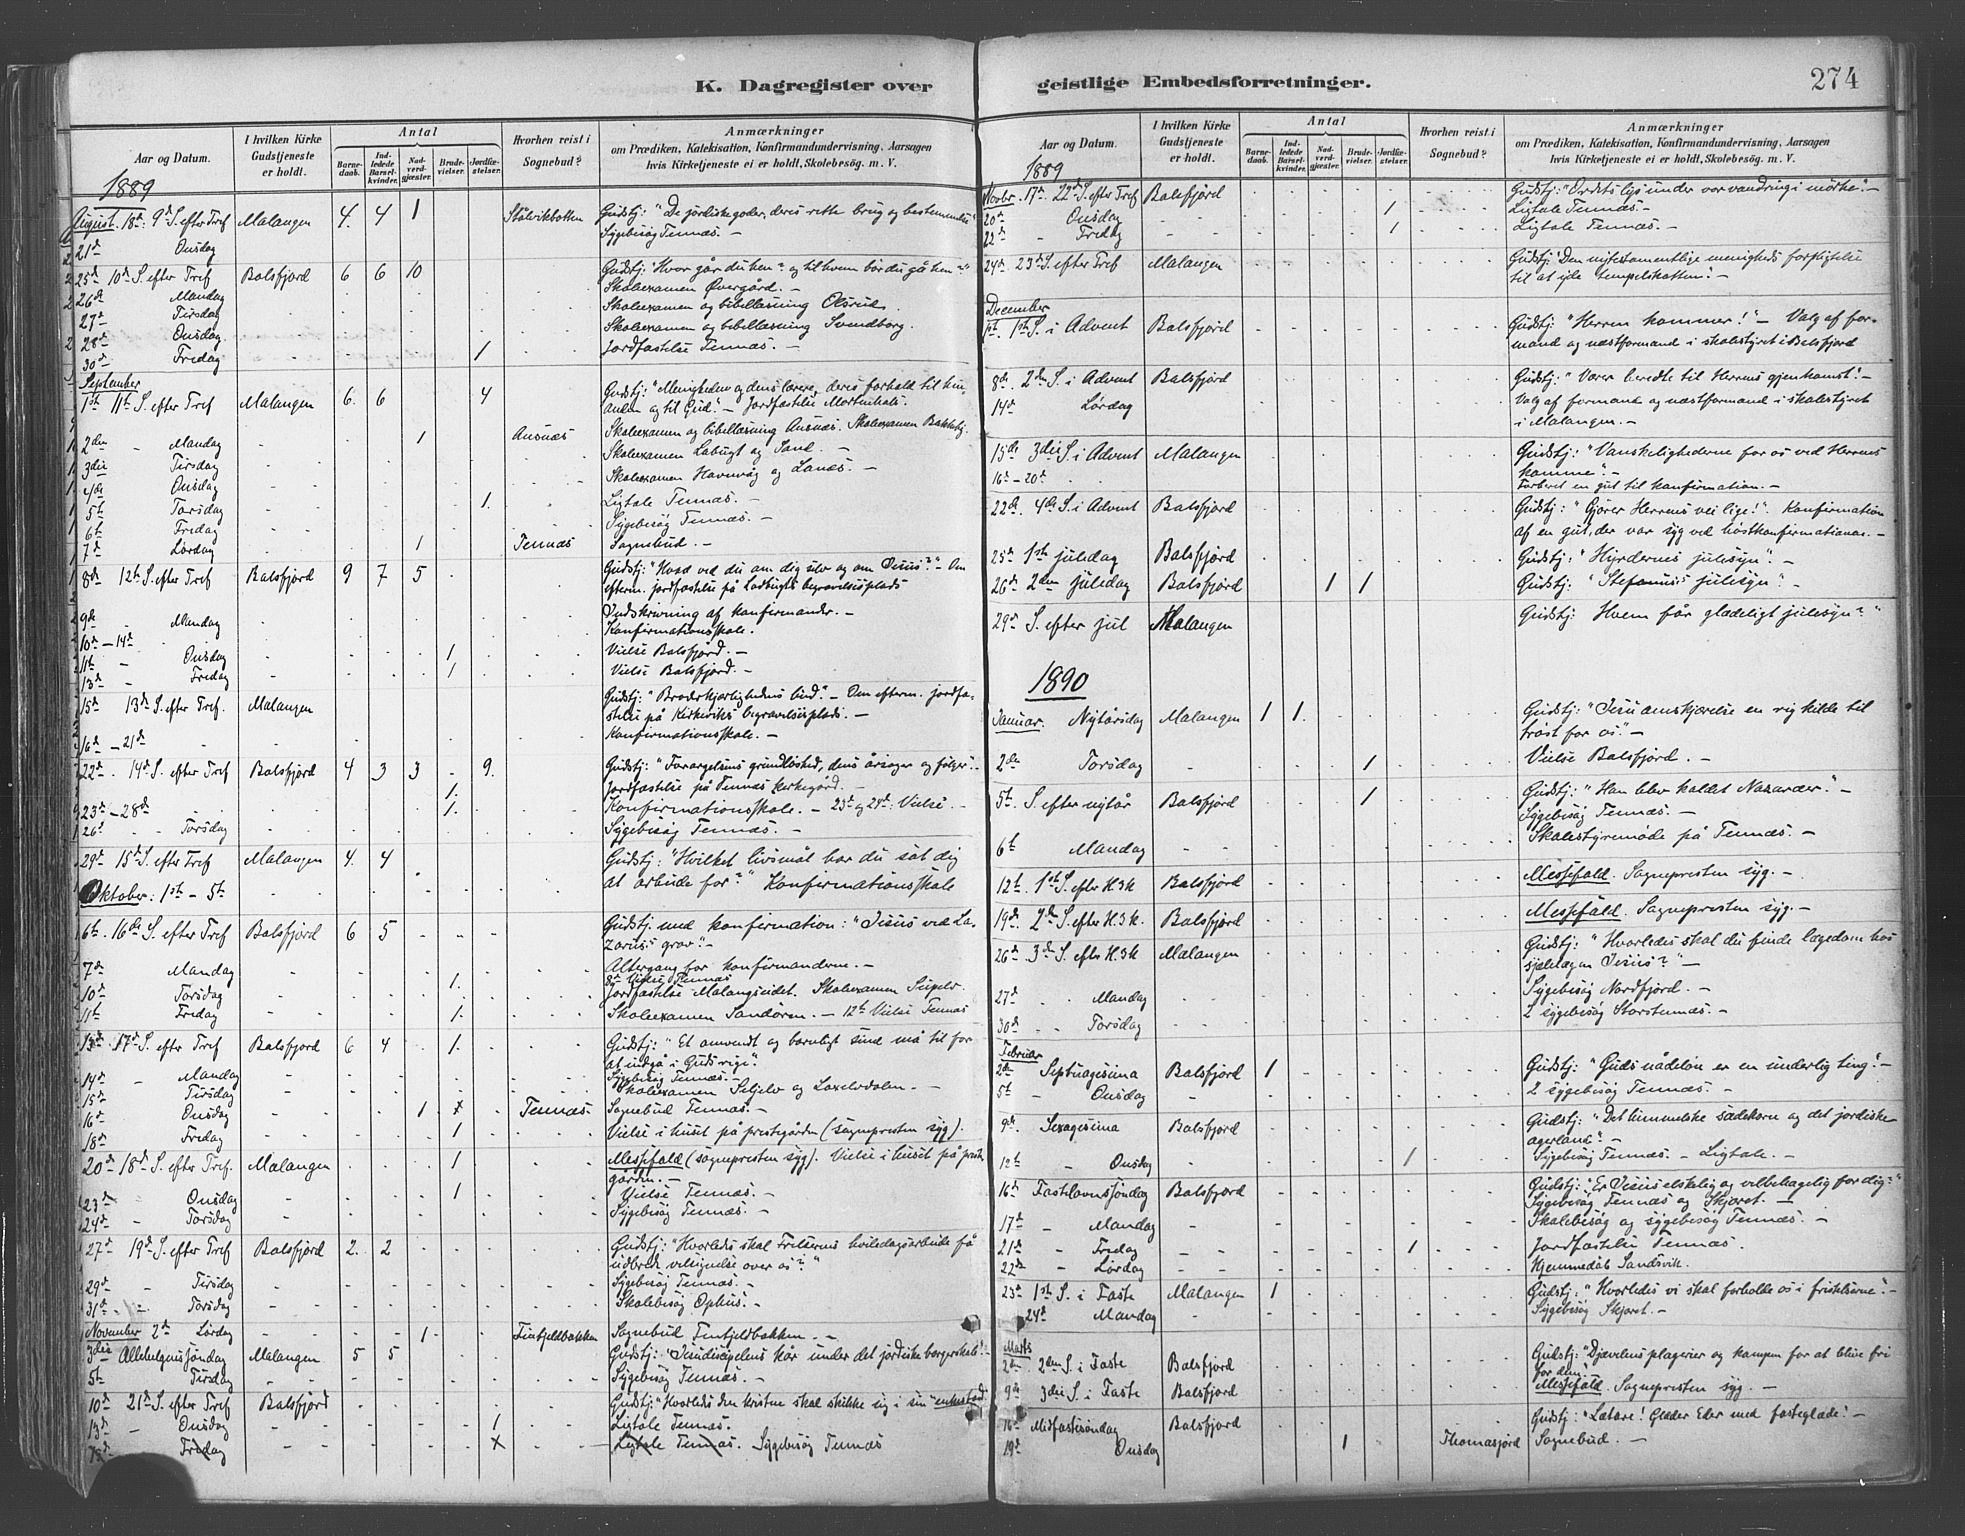 K. Dagregister over
Aar og Datum.
I hvilken Kirke Gudstjeneste er holdt.
Antal
Barnedaab.
Indledede Barselkvinder.
Nadverdgjæster.
Brudevielser.
Jordfæstelser.
Hvorhen reist i Sognebud?
Anmærkninger
om Prædiken, Katekisation, Konfirmandundervisning, Aarsagen
hvis Kirketjeneste ei er holdt, Skolebesög. m. V.
1889
August. 18de 9de S. efter Tref Malangen 4. 4 1 Gudstj: "De jordiske goder, deres rette brug og bestemmelse"
21de Onsdag Sygebesög Tennæs. –
25de 10de S. efter Tref Balsfjord 6 6 10 Gudstj: "Hvor går du hen? og til hvem bör du gå hen?"
26de Mandag Skoleexamen Övergård. –
27de Tirsdag Skoleexamen og bibellæsning Olsrud.
28de Onsdag. Skoleexamen og bibellæsning Svendborg.
30te Fredag 1 Jordfæstelse Tennæs. –
September
1ste 11te S. efter Tref Malangen 6. 6 4 Gudstj: "Menigheden og dens lærere, deres forhold til hin-
anden og til Gud". – Jordfæstelse Mortenhals.
2den Mandag 1 Ausnæs Skoleexamen og bibellæsning Ausnæs. Skoleexamen
3die Tirsdag Skoleexamen Labugt og Sand. –
4de Onsdag Skoleexamen Havnvåg og Lanæs. –
5te Torsdag 1. Ligtale Tennæs. –
6te Fredag Sygebesög Tennæs. –
7de Lördag 1 Tennæs Sognebud. –
8de 12te S. efter Tref Balsfjord 9 7 5 Gudstj: "Hvad ved du om dig selv og om Jesus?" – Om
efterm. jordfæstelse på begravelsesplads
9de Mandag Indskrivning af konfirmander. –
10de – 14de Konfirmationsskole.
11te Onsdag 1 Vielse Balsfjord. –
13de Fredag 1 Vielse Balsfjord. –
15de 13de S. efter Tref. Malangen Gudstj: "Broderkjærlighedens bud". – Om efterm. jordfæ-
stelse på Kirkeviks begravelsesplads. –
16de – 21de Konfirmationsskole. –
22de 14de S. efter Tref Balsfjord 4 3 3 9. Gudstj: "Forargelsens grundlöshed, dens årsager og fölger".
1. Jordfæstelse på Tennæs kirkegård. –
23de – 28de 1. Konfirmationsskole. – 23de og 24de Vielse. –
26de Torsdag Sygebesög Tennæs. –
29de 15de S. efter Tref Malangen 4. 4 Gudstj: "Hvilket livsmål har du sat dig
Oktober: 1ste – 5te at arbeide for?" Konfirmationsskole
6te 16de S. efter Tref Balsfjord 6 5 Gudstj. med konfirmation: "Jesus ved La-
zarus's grav". –
7de Mandag 1. Altergang for konfirmanderne. –
8de Vielse Tennæs
10de Torsdag Jordfæstelse Malangseidet. Skoleexamen
11te Fredag 1. Skoleexamen Sandören. – 12te Vielse Tennæs
13de 17de S. efter Tref Balsfjord 6 4 1. Gudstj: "Et omvendt og barnligt sind må til for
at indgå i Guds rige".
14de Mandag Sygebesög Tennæs. –
15de Tirsdag Skoleexamen Seljelv og Laxelvdalen. –
16de Onsdag 1 x Tennæs Sognebud Tennæs. –
18de Fredag 1 Vielse i huset på prestegården (sognepresten syg).
20de 18de S. efter Tref. Malangen 1 Messefald (sognepresten syg). Vielse i huset på preste-
gården. –
23de Onsdag 1 Vielse Tennæs. –
24de Torsdag Sygebesög Tennæs. –
27de 19de S. efter Tref Balsfjord 2. 2 Gudstj: "Hvorledes skal Frelserens hviledagsarbeide få
udbrede velsignelse over os?"
29de Tirsdag Sygebesög Tennæs. –
31te Torsdag Skolebesög Ophus. –
November 2den Lördag 1 Fintfjeldbakken Sognebud Fintfjeldbakken. –
3die Allehelgenssöndag Malangen 5 5 Gudstj: "Jesudisciplens kår under det jordiske borgerskab".
5te Tirsdag Sygebesög Tennæs. –
10de 21de S. efter Tref Balsfjord Gudstj: "Hvorledes den kristne skal skikke sig i sin enkestad".
13de Onsdag 1 Ligtale Tennæs. –
Fredag x Ligtale Tennæs. Sygebesög Tennæs
geistlige Embedsforretninger.
274
Aar og Datum.
I hvilken Kirke Gudstjeneste er holdt.
Antal
Barnedaab.
Indledede Barselkvinder.
Nadverdgjæster.
Brudevielser.
Jordfæstelser.
Hvorhen reist i Sognebud?
Anmærkninger
om Prædiken, Katekisation, Konfirmandundervisning, Aarsagen
hvis Kirketjeneste ei er holdt, Skolebesög m. V.
1889
Novbr. 17de 22de S. efter Tref Balsfjord Gudstj: "Ordets lys under vor vandring i mörke". –
20de Onsdag 1 Ligtale Tennæs. –
22de Fredag 1 Ligtale Tennæs. –
24de 23de S. efter Tref Malangen Gudstj: "Den nytestamentlige menigheds forpligtelse
til at yde tempelskatten". –
December
1ste 1ste S. i Advent Balsfjord Gudstj: "Herren kommer!" – Valg af for-
mand og næstformand i skolestyret i Balsfjord
8de 2den S. i Advent Balsfjord Gudstj: "Værer beredte til Herrens gjenkomst". –
14de Lördag Valg af formand og næstformand i skolestyret
i Malangen. –
15de 3die S. i Advent Malangen Gudstj: "Vanskelighederne for os ved Herrens
komme". –
16de – 20de Forberet en gut til konfirmation. –
22de 4de S. i Advent Balsfjord Gudstj: "Gjörer Herrens vei lige!". Konfirmation
af en gut, der var syg ved höstkonfirmationen. –
25de 1ste juledag Balsfjord Gudstj: "Hyrdernes julesyn". –
26de 2den juledag Balsfjord 1 1 Gudstj: "Stefanus's julesyn". –
29de S. efter jul Malangen Gudstj: "Hvem får glædeligt julesyn?"
1890
Januar. Nytårsdag Malangen 1 1. Gudstj: "Jesu omskjærelse en rig kilde til
tröst for os". –
2den Torsdag 1 Vielse Balsfjord. –
5te S. efter nytår Balsfjord 1 Gudstj: "Han blev kaldet Nazaræer". –
Sygebesög Tennæs. –
6te Mandag Skolestyremöde på Tennæs. –
12te 1ste S. efter H.3K Balsfjord Messefald. Sognepresten syg. –
19de 2den S. efter H.3K. Balsfjord Messefald. Sognepresten syg. –
26de 3die S. efter H.3K Malangen Gudstj: "Hvorledes skal du finde lægedom hos
sjælelægen Jesus?" –
27de Mandag Sygebesög Nordfjord. –
30te Torsdag 2 sygebesög Storstennæs. –
Februar
2den Septuagesima Balsfjord 1 Gudstj: "Guds nådelön er en underlig ting". –
5te Onsdag 2 sygebesög Tennæs. –
9de Sexagesima Balsfjord Gudstj: "Det himmelske sædekorn og det jordiske
agerland". –
12te Onsdag 1 Sygebesög Tennæs. – Ligtale. –
16de Fastelavnssöndag Balsfjord Gudstj: "Er Jesus elskelig og velbehagelig for dig?"
Sygebesög Tennæs og Skjæret. –
17de Mandag Skolebesög og sygebesög Tennæs. –
21de Fredag 1 Jordfæstelse Tennæs.
22de Lördag Hjemmedåb Sandsvik.
23de 1ste S. i Faste Malangen 1 Gudstj: "Hvorledes vi skal forholde os i fristelserne". –
24de Mandag Sygebesög Skjæret. –
Marts
2den 2den S. i Faste Balsfjord Gudstj: "Djævelens plagerier og kampen for at blive fri
for dem.
9de 3die S. i Faste Balsfjord Messefald. Sognepresten syg. –
16de Midfastesöndag Balsfjord Gudstj: "Lætare! Glæder Eder med fasteglæde!" –
19de Onsdag 1 Thomasjord Sognebud. –